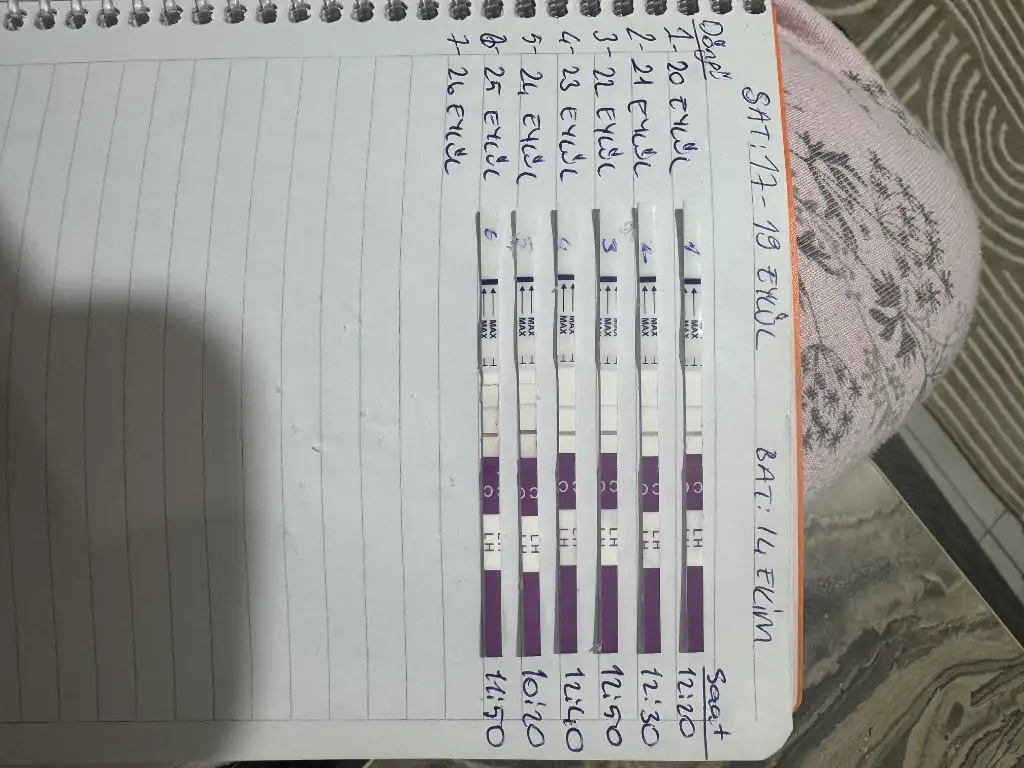 SAT: 17 - 19 EYLÜL BAT: 14 EKİM
Saat
1- 20 EYLÜL 1 MAX LH 12:20
2- 21 EYLÜL 2 MAX MAX LH 12:30
3- 22 EYLÜL 3 MAX LH 12:50
4- 23 EYLÜL 4 MAX MAX LH 12:40
5- 24 EYLÜL 5 MAX MAX LH 10:20
6- 25 EYLÜL 6 MAX MAX LH 11:50
7- 26 EYLÜL